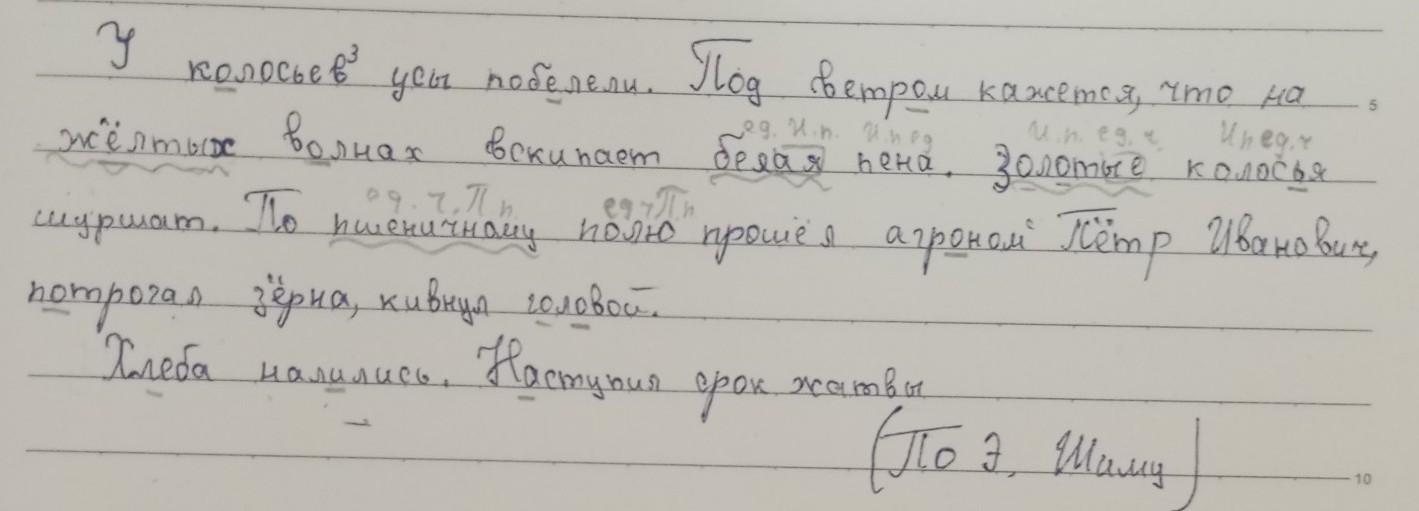 У колосьев³ усы побелели. Под ветром кажется, что на
5
ед. И.п. И.п ед И.п. ед. ч. И п ед. ч
жёлтых волнах вскипает белая пена. Золотые колосья
ед. ч. П п. ед ч П п
шуршат. По пшеничному полю прошёл агроном Пётр Иванович,
потрогал зёрна, кивнул головой.
Хлеба налились. Наступил срок жатвы
(По Э. Шиму)
10